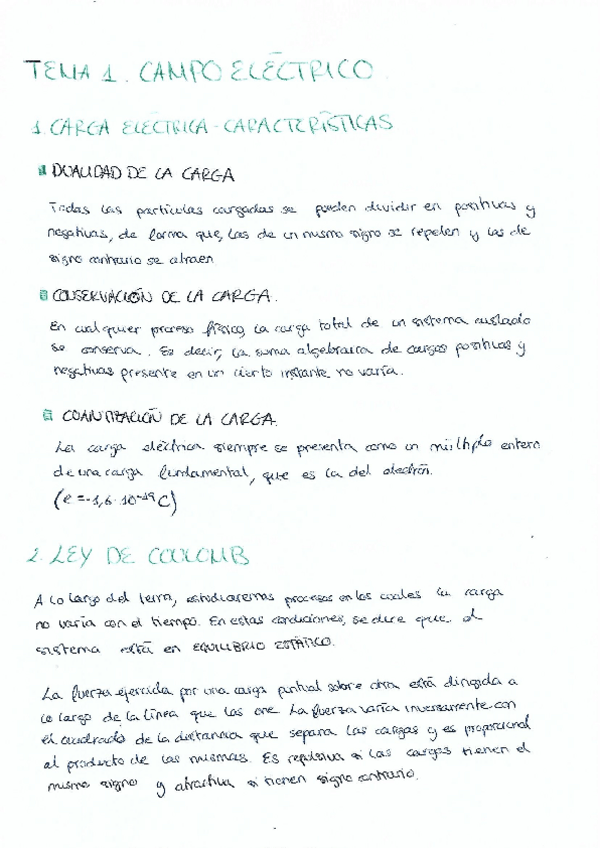 TEMA 1. CAMPO ELÉCTRICO.
1. CARGA ELÉCTRICA - CARACTERÍSTICAS
DUALIDAD DE LA CARGA
Todas las partículas cargadas se pueden dividir en positivas y
negativas, de forma que, las de un mismo signo se repelen y las de
signo contrario se atraen.
CONSERVACIÓN DE LA CARGA.
En cualquier proceso físico, la carga total de un sistema aislado
se conserva. Es decir, la suma algebraica de cargas positivas y
negativas presente en un cierto instante no varía.
CUANTIZACIÓN DE LA CARGA.
La carga eléctrica siempre se presenta como un múltiplo entero
de una carga fundamental, que es la del electrón.
(e = -1,6·10⁻¹⁹ C)
2. LEY DE COULOMB
A lo largo del tema, estudiaremos procesos en los cuales la carga
no varía con el tiempo. En estas condiciones, se dice que el
sistema está en EQUILIBRIO ESTÁTICO.
La fuerza ejercida por una carga puntual sobre otra está dirigida a
lo largo de la línea que las une. La fuerza varía inversamente con
el cuadrado de la distancia que separa las cargas y es proporcional
al producto de las mismas. Es repulsiva si las cargas tienen el
mismo signo y atractiva si tienen signo contrario.